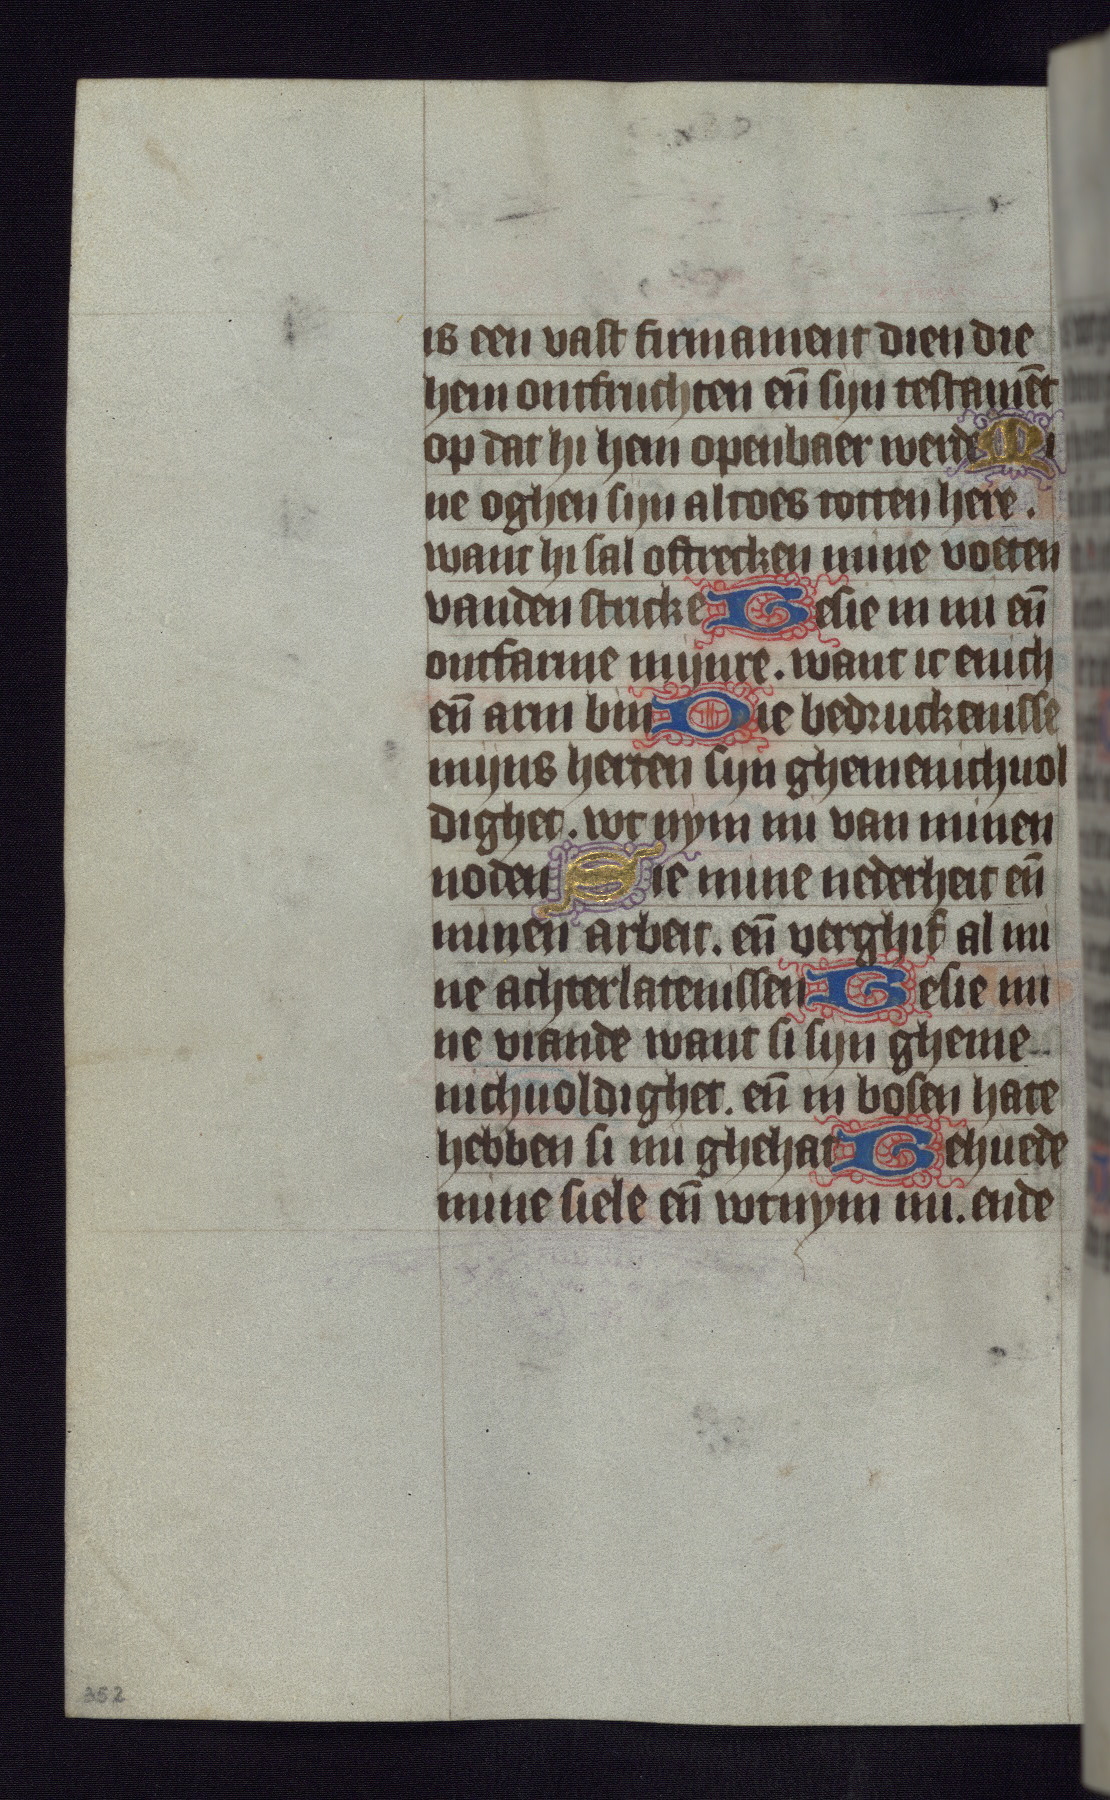 is een vast firmament dien die
hem ontfruchten en̄ sijn testamēt
op dat hi hem openbaer werde Mi
ne oghen sijn altoes totten here .
want hi sal oftrecken mine voeten
vanden stricke Besie in mi en̄
ontfarme mijnre . want ic enich
en̄ arm bin Die bedruckenisse
mijns herten sijn ghemenichuol
dighet . wt nym mi van minen
noden Sie mine nederheit en̄
minen arbeit . en̄ verghif al mi
ne achterlatenissen Besie mi
ne viande want si sijn gheme
nichuoldighet . en̄ in bosen hate
hebben si mi ghehat Behuede
mine siele en̄ wtnym mi . ende
352